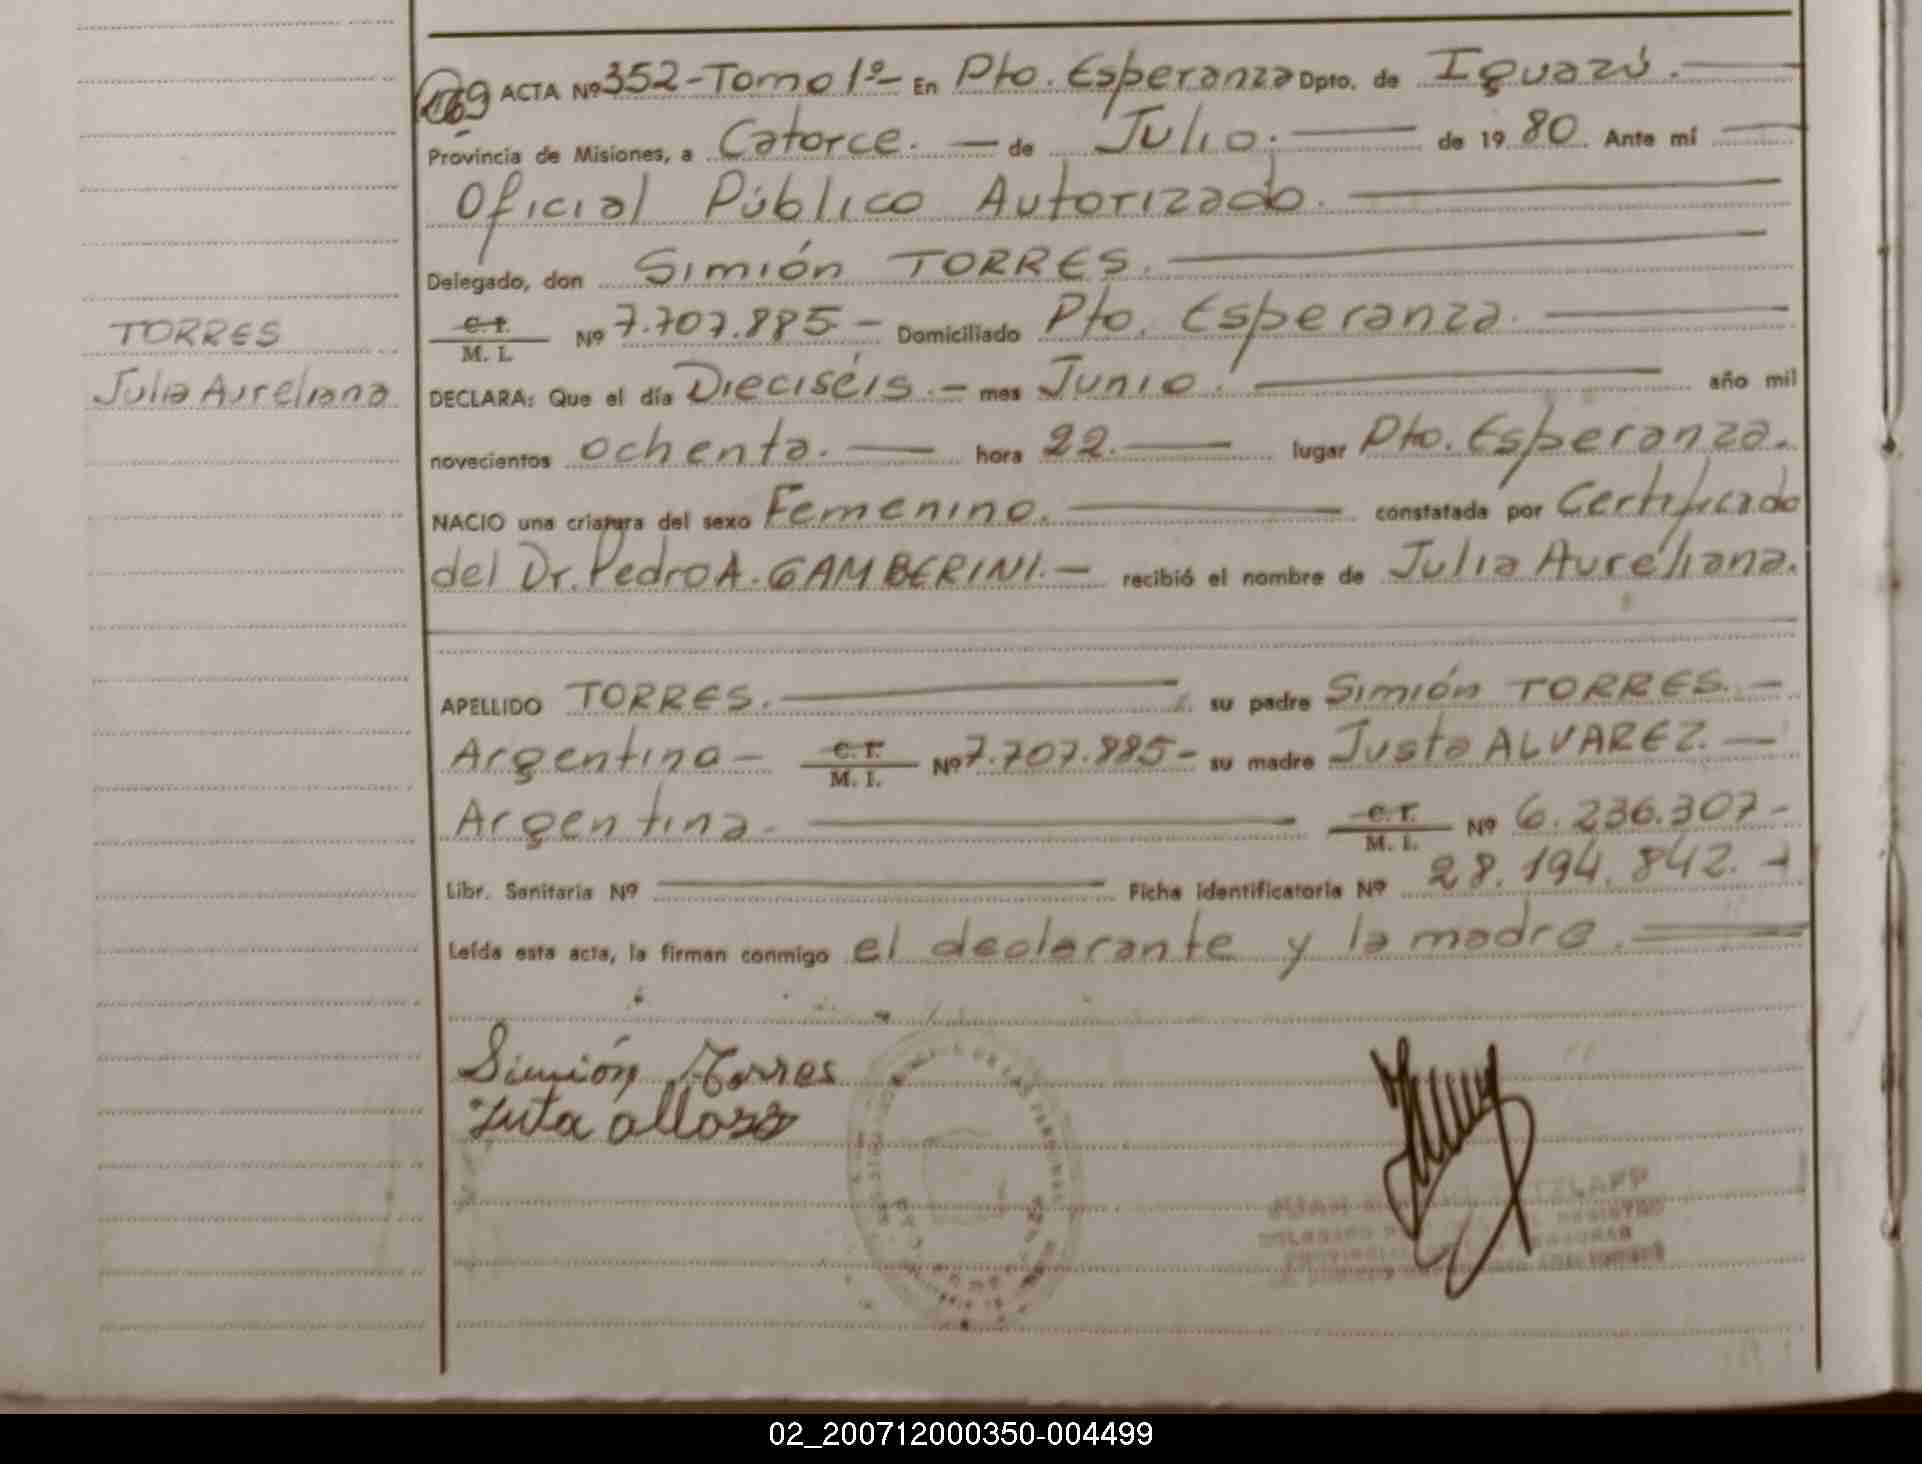 169 ACTA Nº 352-Tomo 1º- En Pto. Esperanza Dpto. de Iguazú.
Provincia de Misiones, a Catorce. — de Julio. — de 19 80. Ante mí
Oficial Público Autorizado.
Delegado, don Simión TORRES.
C.I.
M. I. Nº 7.707.885 - Domiciliado Pto. Esperanza.
TORRES
Julia Aureliana
DECLARA: Que el día Dieciséis. - mes Junio. año mil
novecientos ochenta. — hora 22. — lugar Pto. Esperanza.
NACIO una criatura del sexo Femenino. constatada por Certificado
del Dr. Pedro A. GAMBERINI. - recibió el nombre de Julia Aureliana.
APELLIDO TORRES. su padre Simión TORRES. -
Argentino - C.I. M. I. Nº 7.707.885- su madre Justa ALVAREZ. —
Argentina. C.I. M. I. Nº 6.236.307-
Libr. Sanitaria Nº Ficha identificatoria Nº 28.194.842. -
Leída esta acta, la firman conmigo el declarante y la madre.
Simión Torres
02_200712000350-004499